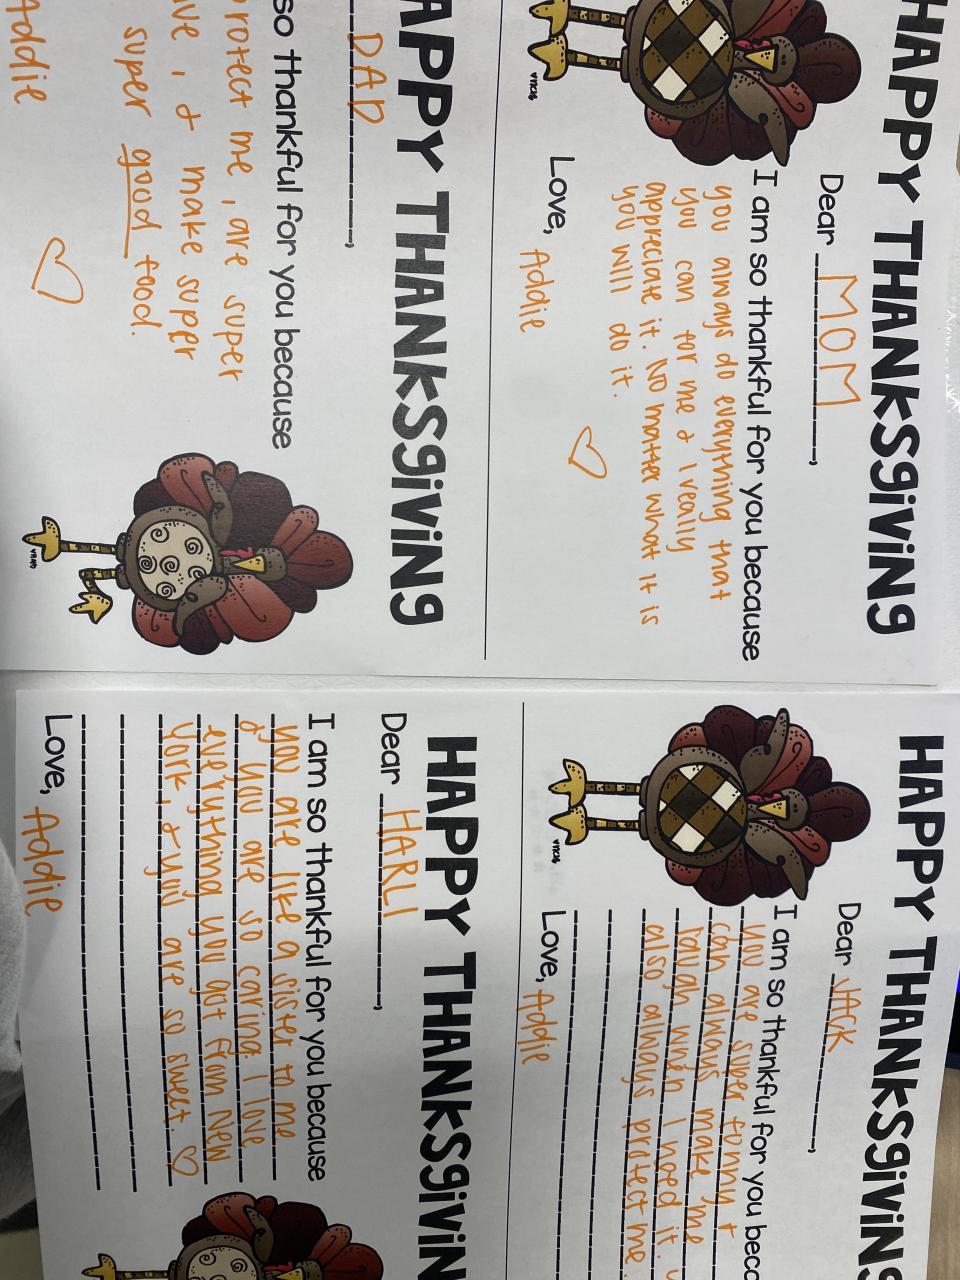 HAPPY THANKSGIVING
Dear MOM,
I am so thankful for you because
you always do everything that
you can for me & I really
appreciate it. No matter what it is
you will do it.
Love, Addie
APPY THANKSGIVING
DAD,
so thankful for you because
protect me, are super
, & make super
super good food.
Addie
HAPPY THANKSGIVIN
Dear JACK,
I am so thankful for you beca
you are super funny &
can always make me
laugh when I need it.
also always protect me.
Love, Addie
HAPPY THANKSGIVIN
Dear HARLI,
I am so thankful for you because
you are like a sister to me
& you are so caring. I love
everything you got from New
York, & you are so sweet.
Love, Addie